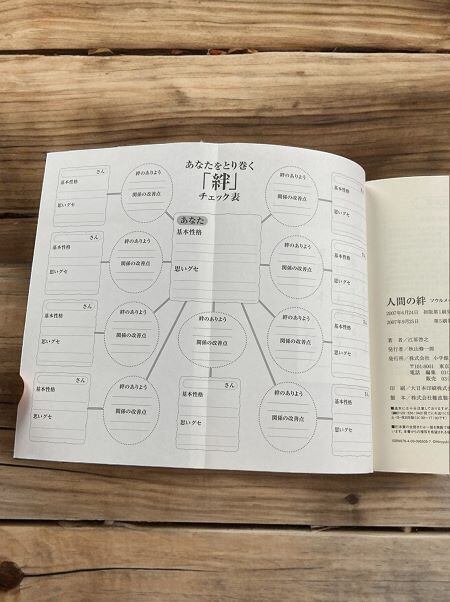 あなたをとり巻く
「絆」
チェック表
あなた
基本性格
思いグセ
さん
基本性格
思いグセ
絆のありよう
関係の改善点
絆のありよう
関係の改善点
さん
基本性格
思いグセ
絆のありよう
関係の改善点
絆のありよう
関係の改善点
さん
基本性格
思いグセ
絆のありよう
関係の改善点
絆のありよう
関係の改善点
絆のありよう
関係の改善点
さん
基本性格
思いグセ
絆のありよう
関係の改善点
絆のありよう
関係の改善点
さん
基本性格
思いグセ
基本性格
思いグセ
基本性格
思いグセ
基本性格
思いグセ
人間の絆 ソウルメ
2007年6月24日 初版第1刷
2007年9月25日 第5刷
著 者/江原啓之
発行者/秋山修一郎
発行所/株式会社 小学館
〒101-8001 東京
電話 編集 03
販売 03
印 刷/大日本印刷株式
製 本/株式会社